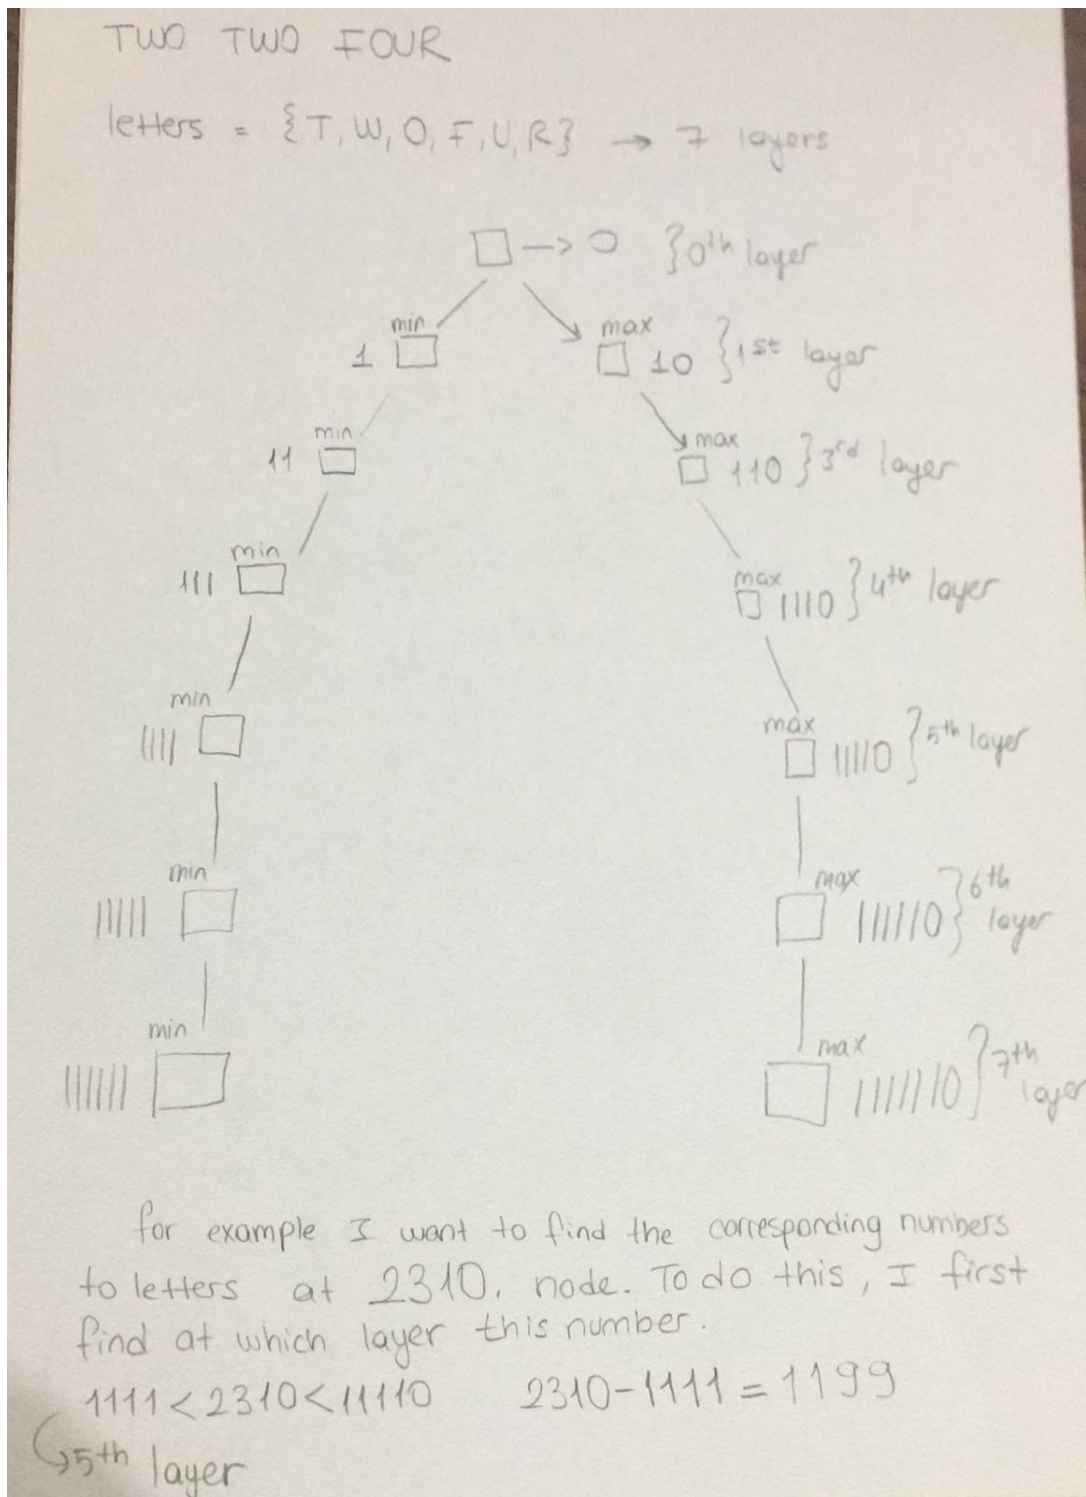 TWO TWO FOUR
letters = {T, W, O, F, U, R} → 7 layers
□ → 0 }0th layer
min max
1 □ □ 10 }1st layer
min max
11 □ □ 110 }3rd layer
min max
111 □ □ 1110 }4th layer
min max
1111 □ □ 11110 }5th layer
min max
11111 □ □ 111110 }6th layer
min max
111111 □ □ 1111110 }7th layer
for example I want to find the corresponding numbers
to letters at 2310. node. To do this, I first
find at which layer this number.
1111 < 2310 < 11110 2310-1111 = 1199
↳5th layer